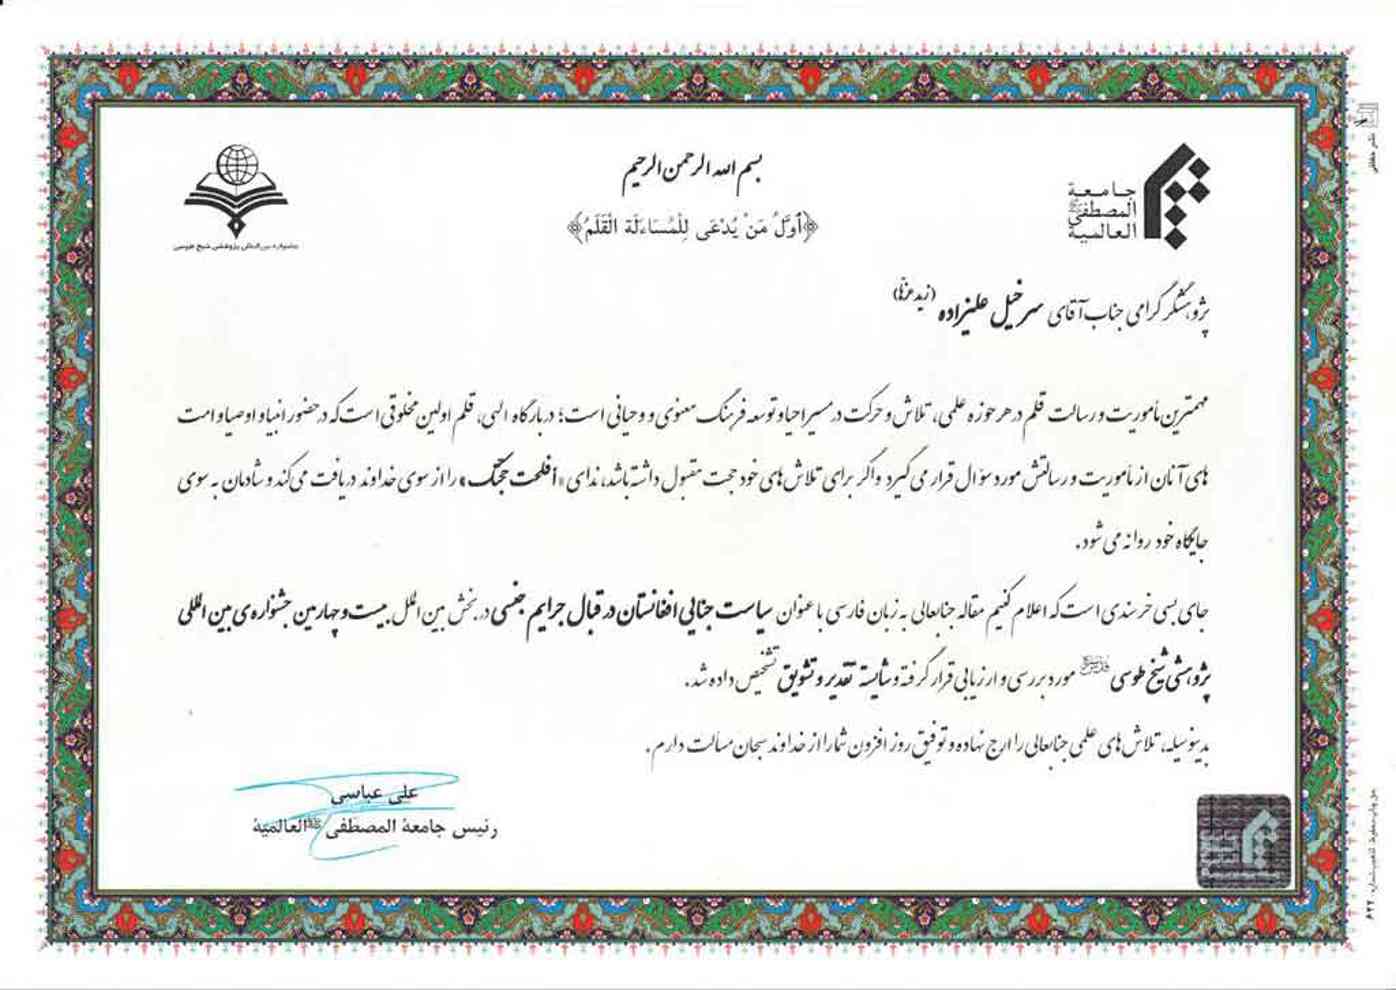 بسم الله الرحمن الرحیم
﴿أَوَّلُ مَنْ يُدْعَى لِلْمُسَاءَلَة الْقَلَمُ﴾
جامعة
المصطفی
العالمیة
جشنواره بین‌المللی پژوهشی شیخ طوسی
پژوهشگر گرامی جناب آقای سرخیل علیزاده (زید عزّه)
مهمترین مأموریت و رسالت قلم در هر حوزه علمی، تلاش و حرکت در مسیر احیا و توسعه فرهنگ معنوی و وحیانی است؛ در بارگاه الهی، قلم اولین مخلوقی است که در حضور انبیا و اوصیا و امت
های آنان از مأموریت و رسالتش مورد سؤال قرار می گیرد و اگر برای تلاش های خود حجت مقبول داشته باشد، ندای «أفلحت حجتک» را از سوی خداوند دریافت می کند و شادمان به سوی
جایگاه خود روانه می شود.
جای بسی خرسندی است که اعلام کنیم مقاله جنابعالی به زبان فارسی با عنوان سیاست جنایی افغانستان در قبال جرایم جنسی در بخش بین الملل بیست و چهارمین جشنواره ی بین المللی
پژوهشی شیخ طوسی مورد بررسی و ارزیابی قرار گرفته و شایسته تقدیر و تشویق تشخیص داده شد.
بدینوسیله، تلاش های علمی جنابعالی را ارج نهاده و توفیق روز افزون شما را از خداوند سبحان مسألت دارم.
علی عباسی
رئیس جامعة المصطفی ﷺ العالمیة